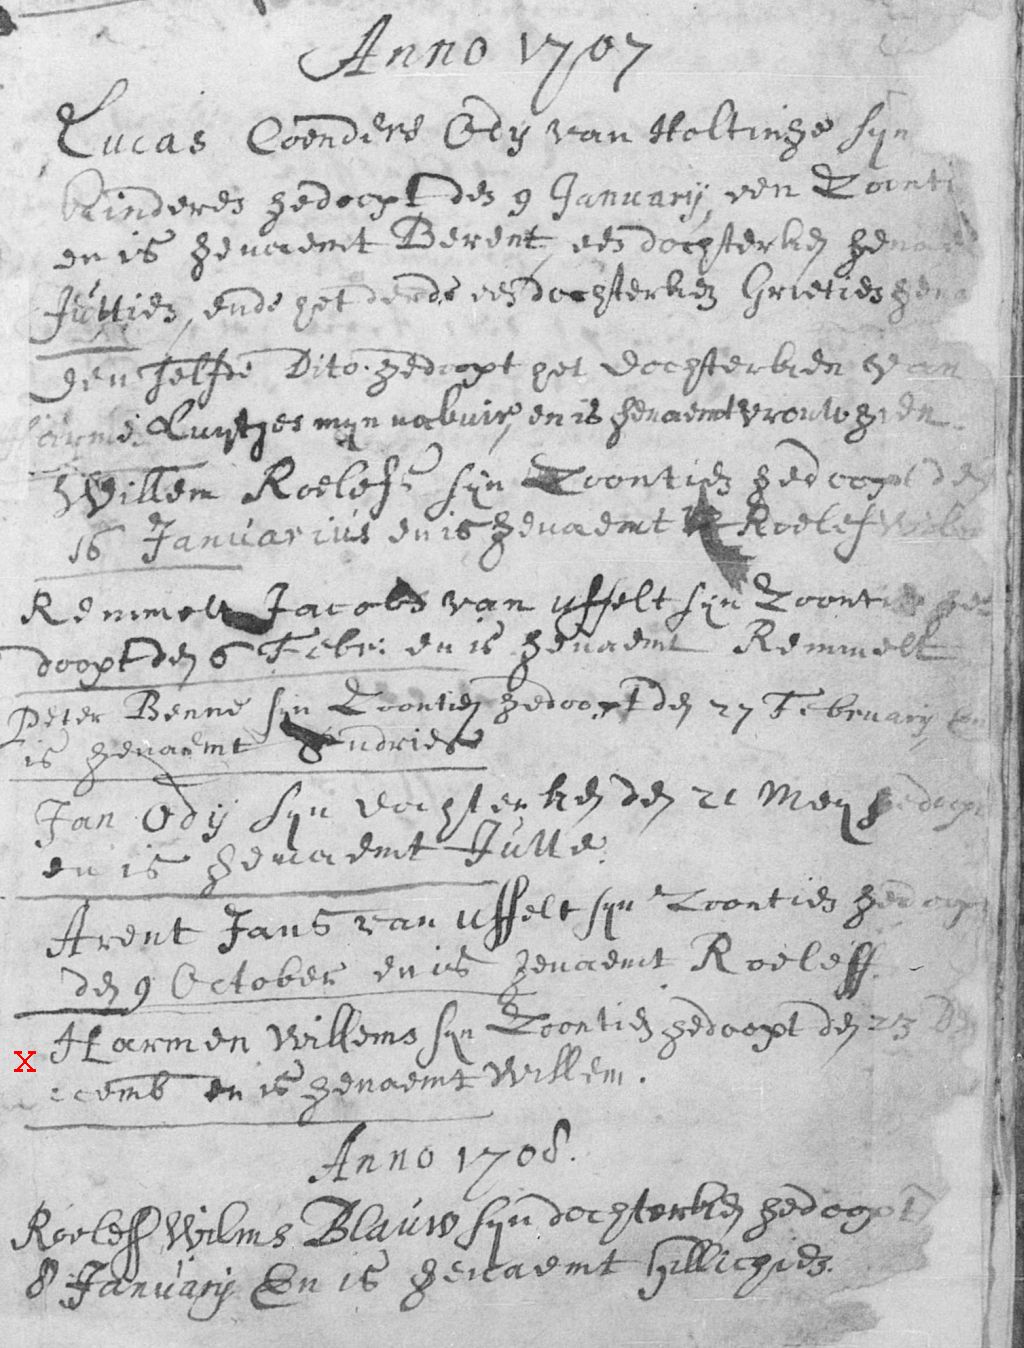 Anno 1707
Lucas Coenders Ody van Holtinge syn
kinderen gedoopt den 9 January, een Zoonti
en is genaemt Berent, een dochterken gena
Juttien, ende het derde een dochterken Grietien gena
den selfde Dito gedoopt het dochterken van
Harme Luytges myn nabuir, en is genaemt vrouwgien
Willem Roelefs syn Zoontien gedoopt den
16 Januarius en is genaemt Roelef Willem
Remmelt Jacobs van uffelt syn Zoontien ge
doopt den 6 Febr: en is genaemt Remmelt
Peter Benne syn Zoontien gedoopt den 27 February en
is genaemt Hendrick
Jan Ody syn dochterken den 21 Mey gedoopt
en is genaemt Jutte.
Arent Jans van uffelt syn Zoontien gedoopt
den 9 October en is genaemt Roeleff.
X Harmen Willems syn Zoontien gedoopt den 23 De
cemb en is genaemt Willem.
Anno 1708.
Roeleff Wilms Blauw syn dochterken gedoopt
8 January En is genaemt Hillichien.